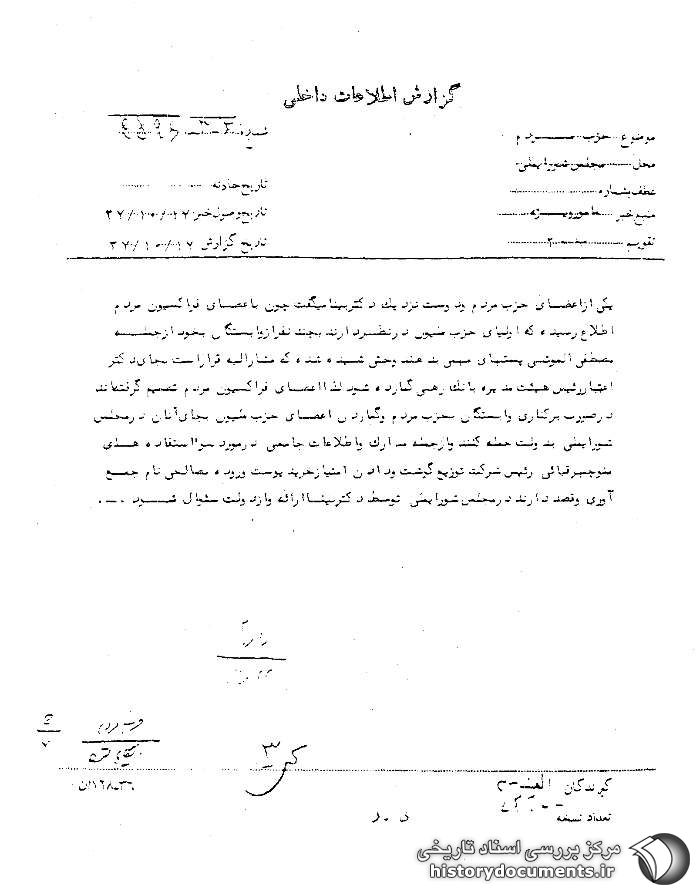 گزارش اطلاعات داخلی
موضوع حزب مردم
محل مجلس شورایملی
عطف بشماره
منبع خبر مامور ویژه
تقویم
شماره
تاریخ حادثه
تاریخ وصول خبر ۳۷/۱۰/۱۷
تاریخ گزارش ۳۷/۱۰/۱۷
یکی ازاعضای حزب مردم ودوست نزدیک دکتربینا میگفت چون باعضای فراکسیون مردم
اطلاع رسیده که اولیای حزب ملیون درنظردارند بچند نفرازوابستگان بخود ازجمله
مصطفی الموتی پستهای مهمی بدهند وحتی شنیده شده که مشارالیه قراراست بجای دکتر
اعتباررئیس هیئت مدیره بانک رهنی گمارده شود لذا اعضای فراکسیون مردم تصمیم گرفته‌اند
درصورت برکناری وابستگان بحزب مردم وگماردن اعضای حزب ملیون بجای آنان درمجلس
شورایملی بدولت حمله کنند وازجمله مدارک واطلاعات جامعی درمورد سوء استفاده های
منوچهرقبائی رئیس شرکت توزیع گوشت ودادن امتیازخرید پوست وروده بمصالحی نام جمع
آوری وقصد دارند درمجلس شورایملی توسط دکتربینا ارائه وازدولت سئوال شود .
حزب مردم
گیرندگان
تعداد نسخه
مرکز بررسی اسناد تاریخی
historydocuments.ir